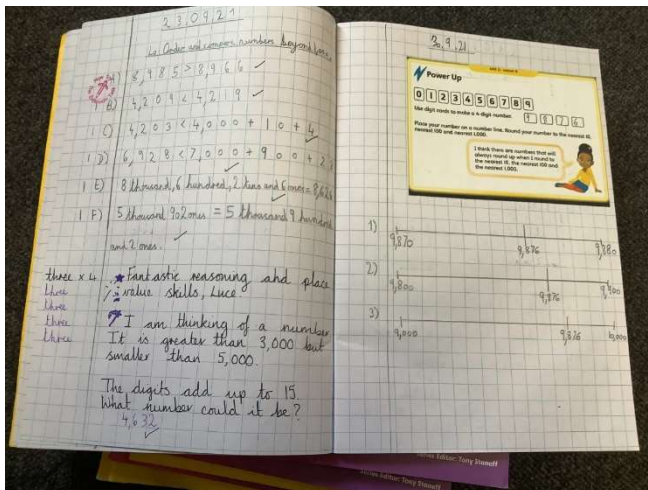 230921
Lo: Order and compare numbers beyond
A) 8,985 > 8,966
B) 4,209 < 4,219
C) 4,203 < 4,000 + 10 + 4
1 D) 6,928 < 7,000 + 900 + 2
1 E) 8 thousand, 6 hundred, 2 tens and 6 ones = 8,626
1 F) 5 thousand 902 ones = 5 thousand 9 hundred
and 2 ones.
three x 4
three
three
three
three
Fantastic reasoning and place
value skills, Luce.
I am thinking of a number.
It is greater than 3,000 but
smaller than 5,000.
The digits add up to 15.
What number could it be?
4,632
30.9.21
Power Up
0 1 2 3 4 5 6 7 8 9
Use digit cards to make a 4-digit number.
9 8 7 6
Place your number on a number line. Round your number to the nearest 10,
nearest 100 and nearest 1,000.
I think there are numbers that will
always round up when I round to
the nearest 10, the nearest 100 and
the nearest 1,000.
1)
9,870 9,876 9,880
2)
9,800 9,876 9,900
3)
9,000 9,876 10,000
Series Editor: Tony Staneff
Series Editor: Tony Staneff